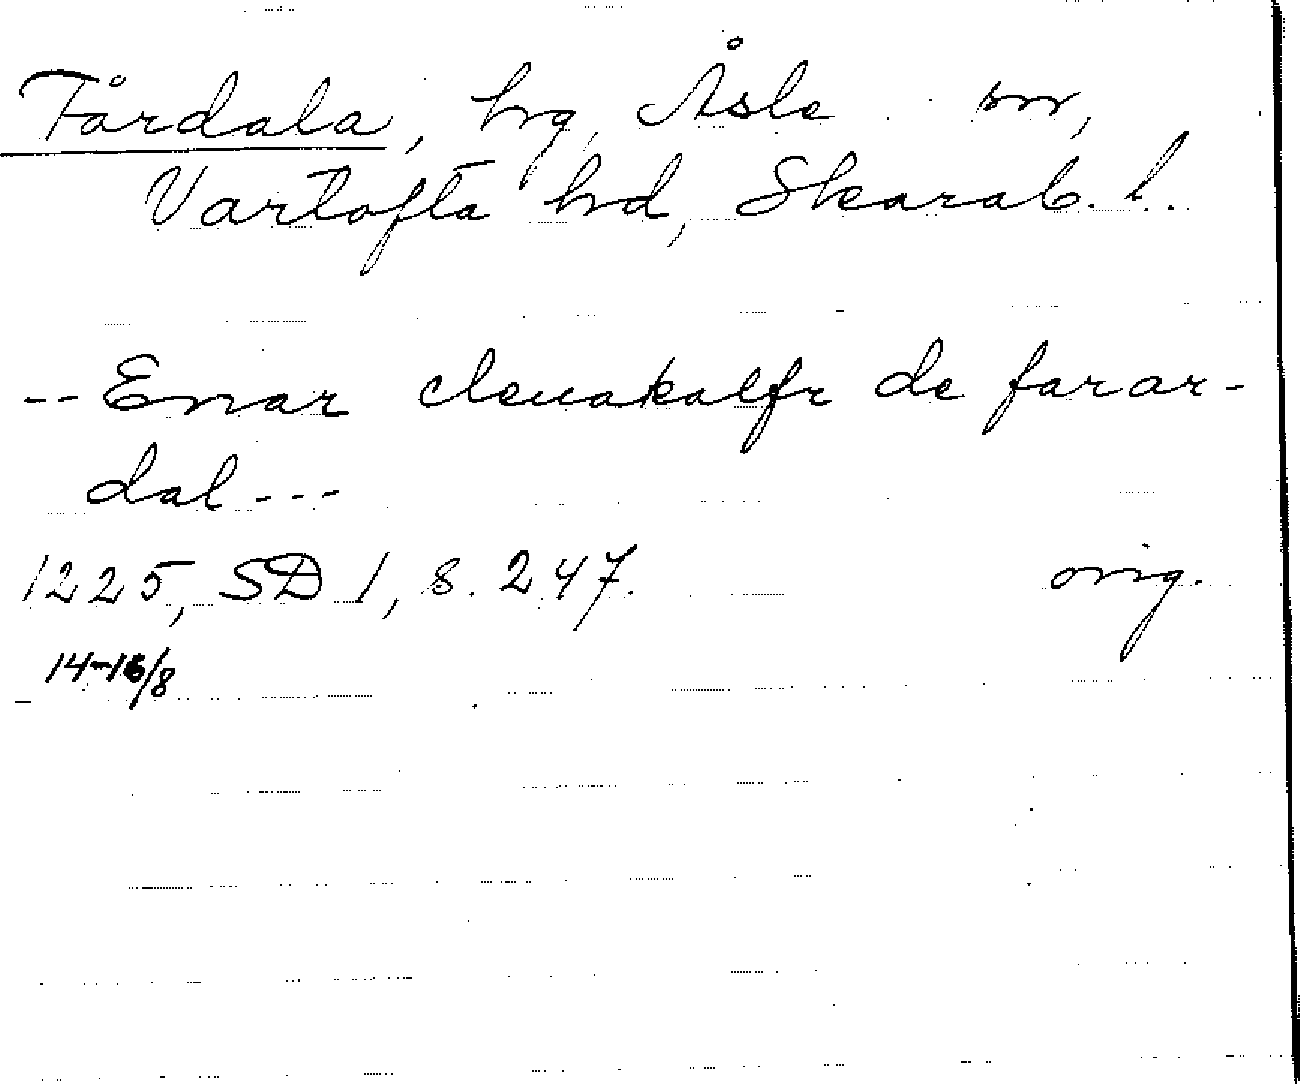 Fårdala, hrg, Åsle sn,
Vartofta hd, Skarab. l.
-- Emar clenakalfr de farar-
dal ---
1225, SD 1, s. 247. orig.
14-16/8